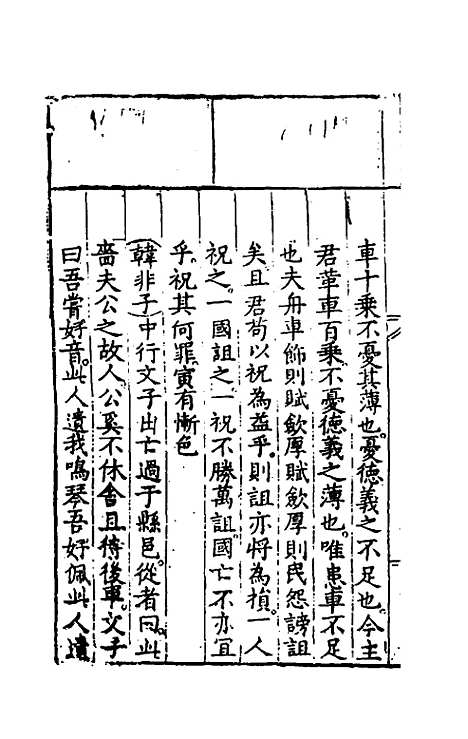 車十乘不憂其薄也。憂德義之不足也。今主
君革車百乘。不憂德義之薄也。唯患車不足
也夫舟車飾則賦斂厚賦斂厚則民怨謗詛
矣且君苟以祝為益乎。則詛亦將為損。一人
祝之。一國詛之一祝不勝萬詛國亡不亦宜
乎。祝其何罪寅有慚色
韓非子中行文子出亡過于縣邑。從者曰。此
嗇夫公之故人。公奚不休舍且待後車。文子
曰吾嘗好音。此人遺我鳴琴吾好佩此人遺